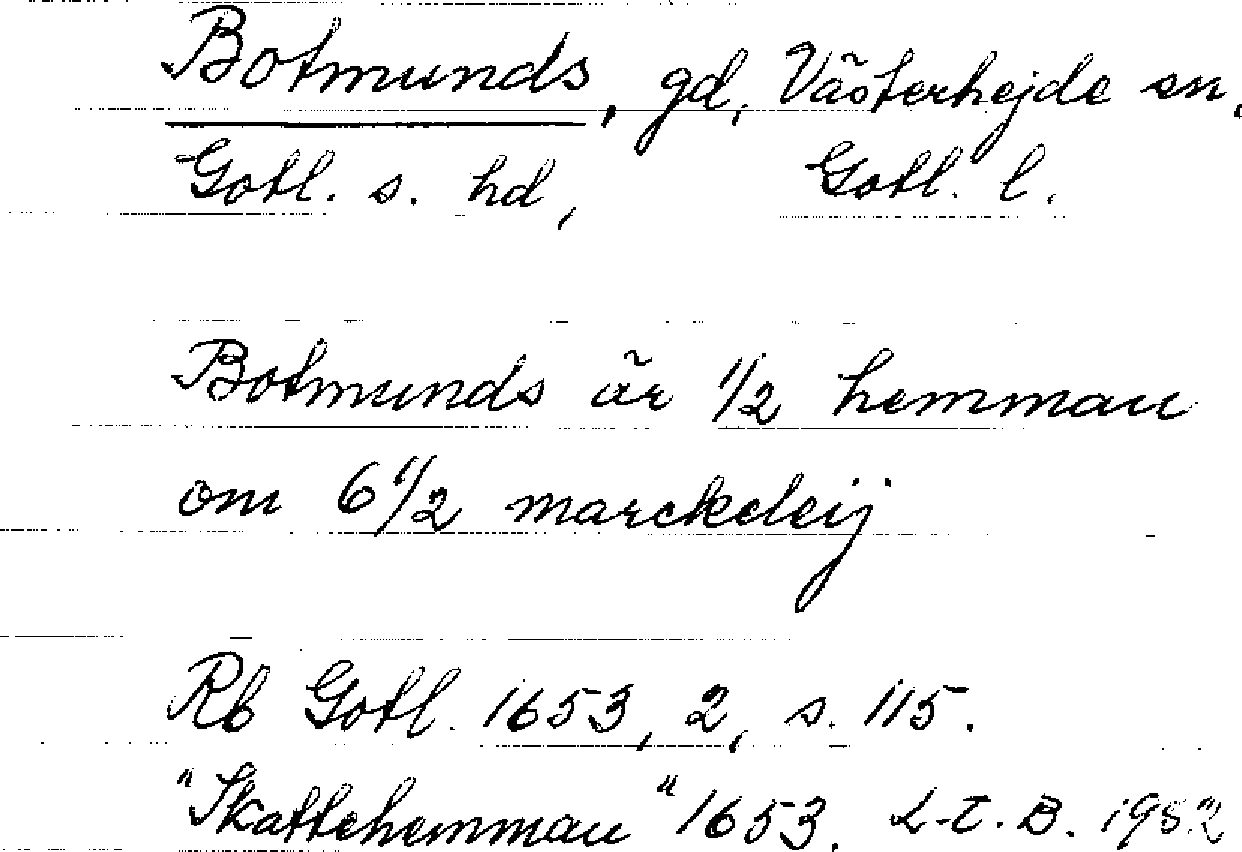 Botmunds, gd, Västerhejde sn,
Gotl. s. hd, Gotl. l.
Botmunds är 1/2 hemman
om 6 1/2 marckeleij
Rb Gotl. 1653, 2, s. 115.
"Skattehemman" 1653. L-E. B. 1982